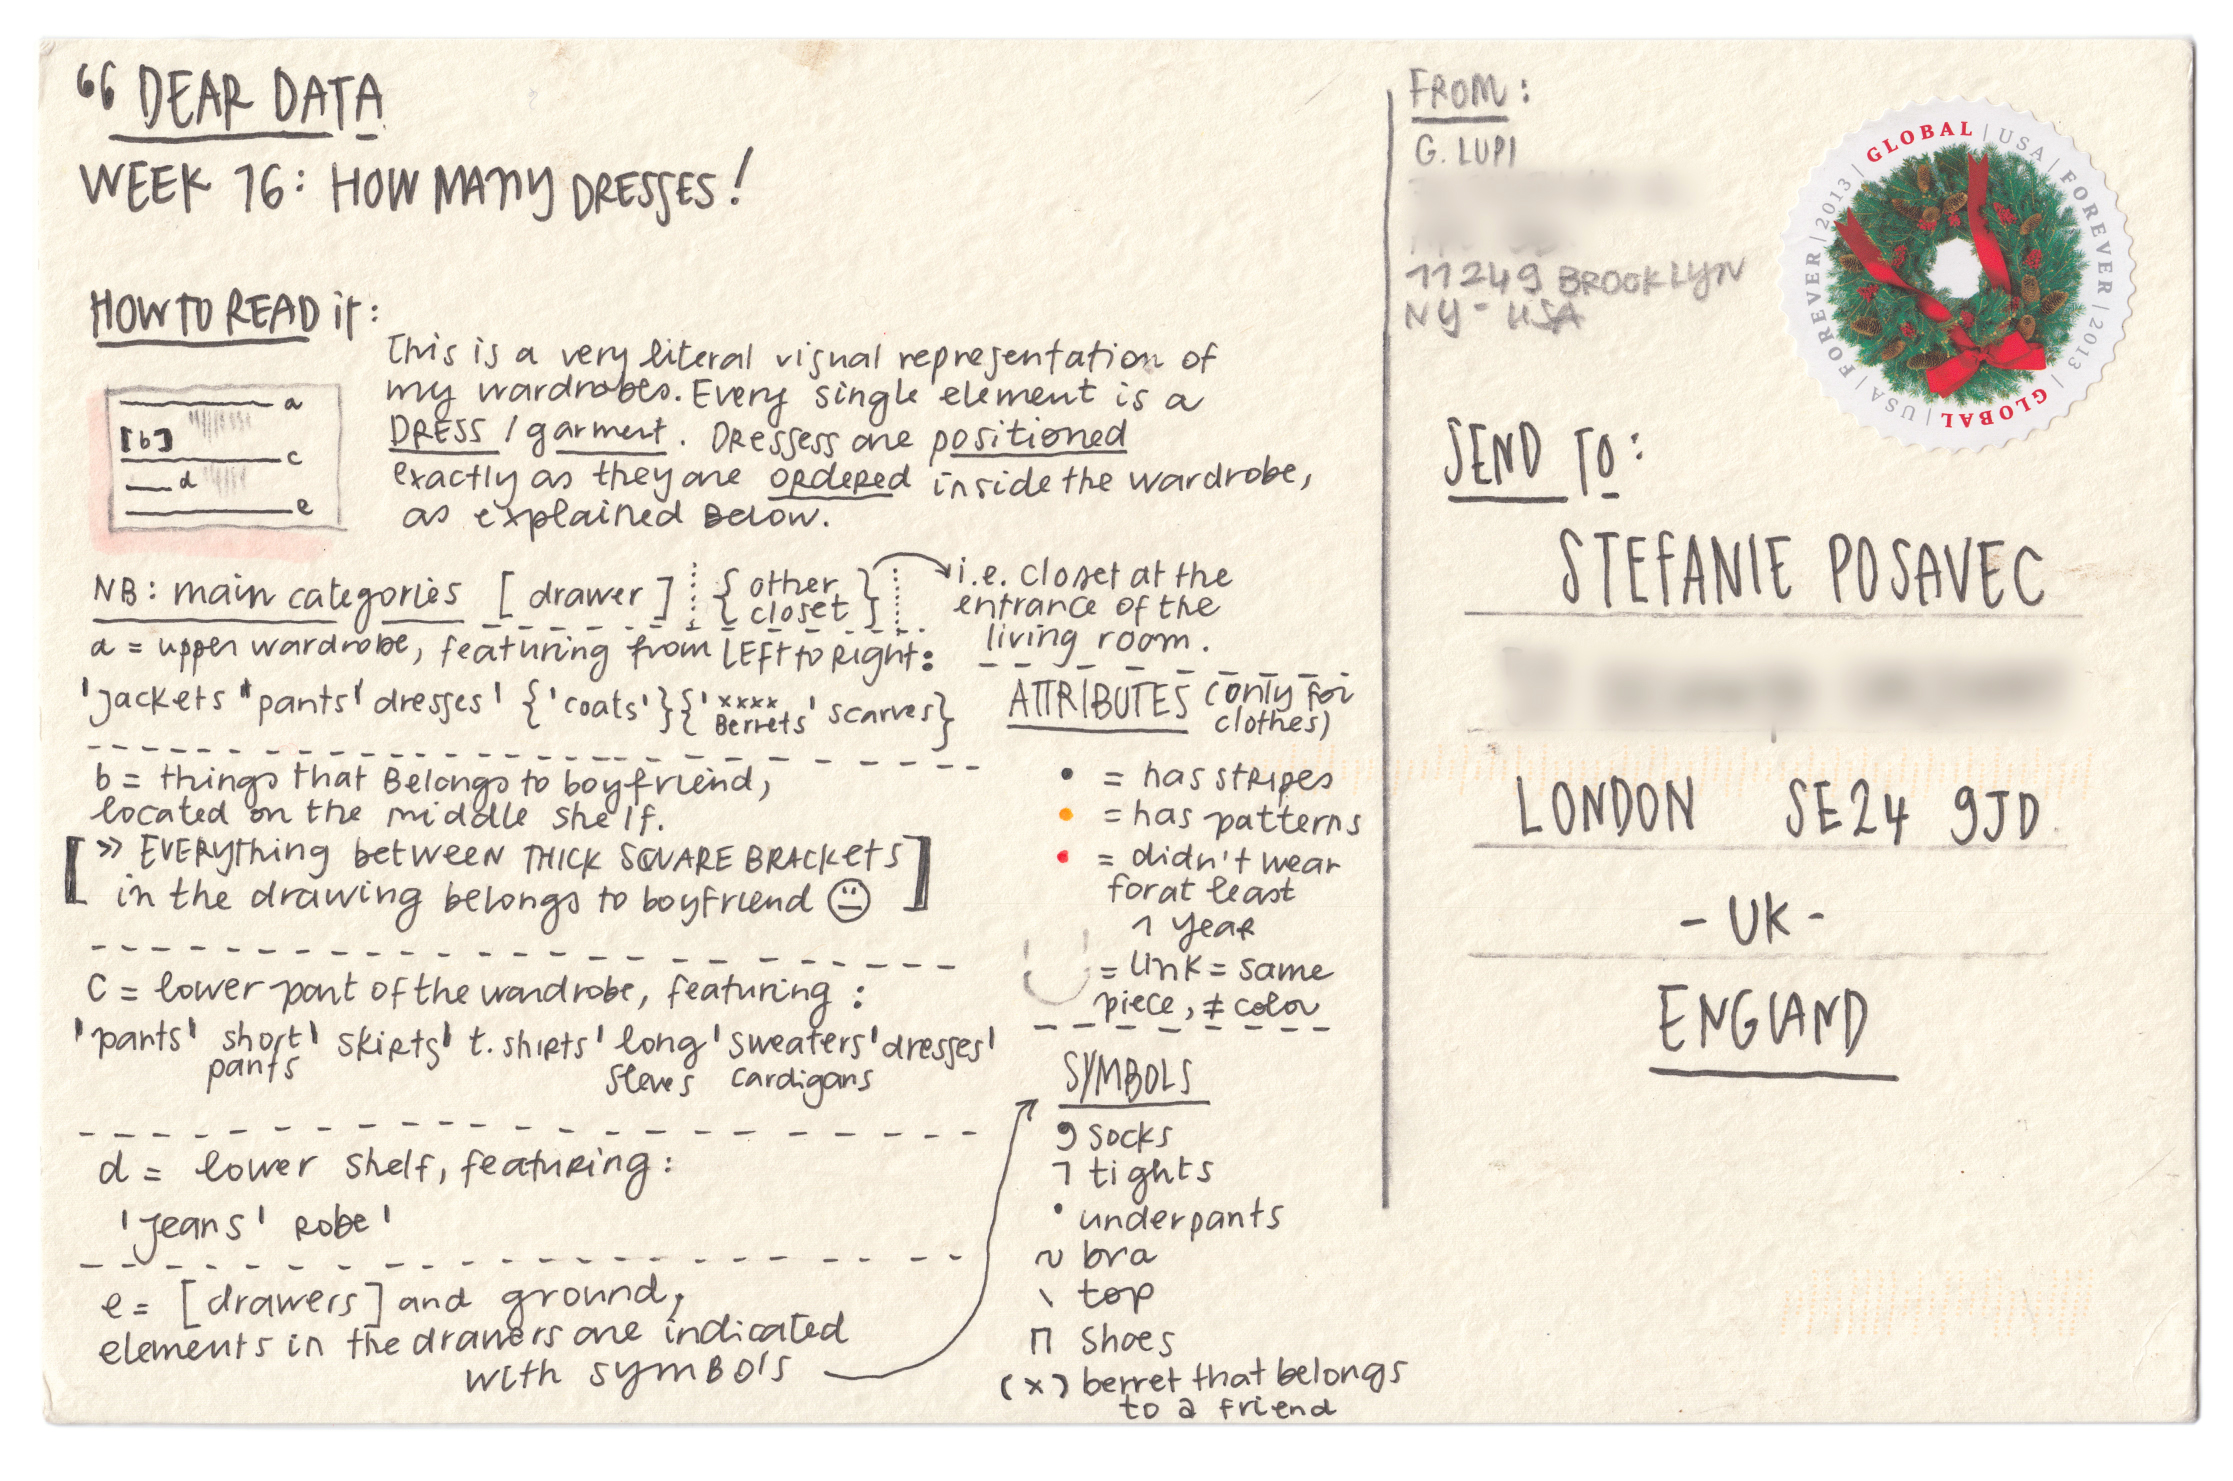 “ DEAR DATA
WEEK 16: HOW MANY DRESSES!
HOW TO READ it:
This is a very literal visual representation of
my wardrobes. Every single element is a
DRESS / garment. Dressess are positioned
exactly as they are ORDERED inside the wardrobe,
as explained below.
a
[b]
c
d
e
NB: main categories [drawer] {other
closet}
i.e. closet at the
entrance of the
living room.
a = upper wardrobe, featuring from LEFT to Right:
'jackets' 'pants' dresses' {'coats'} {'xxxx
Berrets' scarves}
b = things that Belongs to boyfriend,
located on the middle shelf.
[ >> EVERYthing between THICK SQUARE BRACKETS
in the drawing belongs to boyfriend ]
c = lower part of the wardrobe, featuring:
'pants' short' skirts' t.shirts' long' sweaters' dresses'
pants sleves cardigans
d = lower shelf, featuring:
'jeans' robe'
e = [drawers] and ground,
elements in the drawers are indicated
with symbols
ATTRIBUTES (only for
clothes)
• = has stripes
• = has patterns
• = didn't wear
for at least
1 year
= link = same
piece, ≠ color
SYMBOLS
9 socks
7 tights
• underpants
~ bra
\ top
⊓ shoes
(x) berret that belongs
to a friend
FROM:
G. LUPI
11249 BROOKLYN
NY - USA
GLOBAL | USA | FOREVER | 2013 | GLOBAL | USA | FOREVER | 2013 |
SEND TO:
STEFANIE POSAVEC
LONDON SE24 9JD
- UK -
ENGLAND